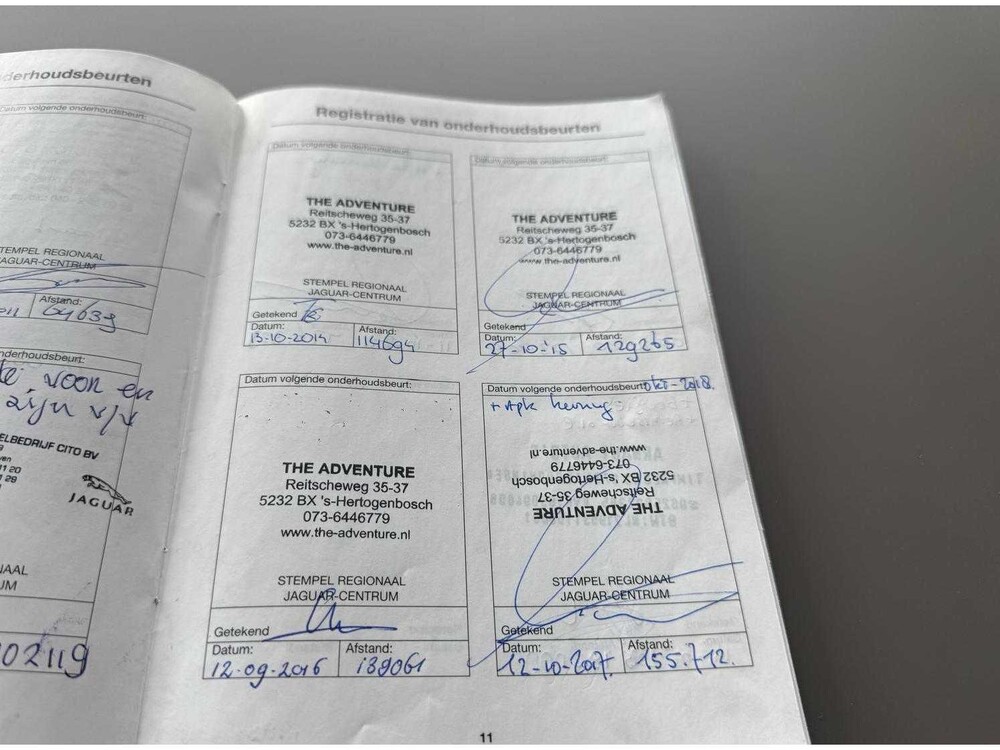 derhoudsbeurten
Datum volgende onderhoudsbeurt:
TEMPEL REGIONAAL
AGUAR-CENTRUM
Afstand:
64639
nderhoudsbeurt:
voor en
zijn v/v
ELBEDRIJF CITO BV
JAGUAR
AAL
UM
02119
Registratie van onderhoudsbeurten
Datum volgende onderhoudsbeurt:
THE ADVENTURE
Reitscheweg 35-37
5232 BX 's-Hertogenbosch
073-6446779
www.the-adventure.nl
STEMPEL REGIONAAL
JAGUAR-CENTRUM
Getekend
Datum:
13-10-2014
Afstand:
114694
Datum volgende onderhoudsbeurt:
THE ADVENTURE
Reitscheweg 35-37
5232 BX 's-Hertogenbosch
073-6446779
www.the-adventure.nl
STEMPEL REGIONAAL
JAGUAR-CENTRUM
Getekend
Datum:
27-10-'15
Afstand:
129265
Datum volgende onderhoudsbeurt:
THE ADVENTURE
Reitscheweg 35-37
5232 BX 's-Hertogenbosch
073-6446779
www.the-adventure.nl
STEMPEL REGIONAAL
JAGUAR-CENTRUM
Getekend
Datum:
12-09-2016
Afstand:
139061
Datum volgende onderhoudsbeurt: okt-2018.
+ Apk keuring
THE ADVENTURE
Reitscheweg 35-37
5232 BX 's-Hertogenbosch
073-6446779
www.the-adventure.nl
STEMPEL REGIONAAL
JAGUAR-CENTRUM
Getekend
Datum:
12-10-2017.
Afstand:
155.712.
11